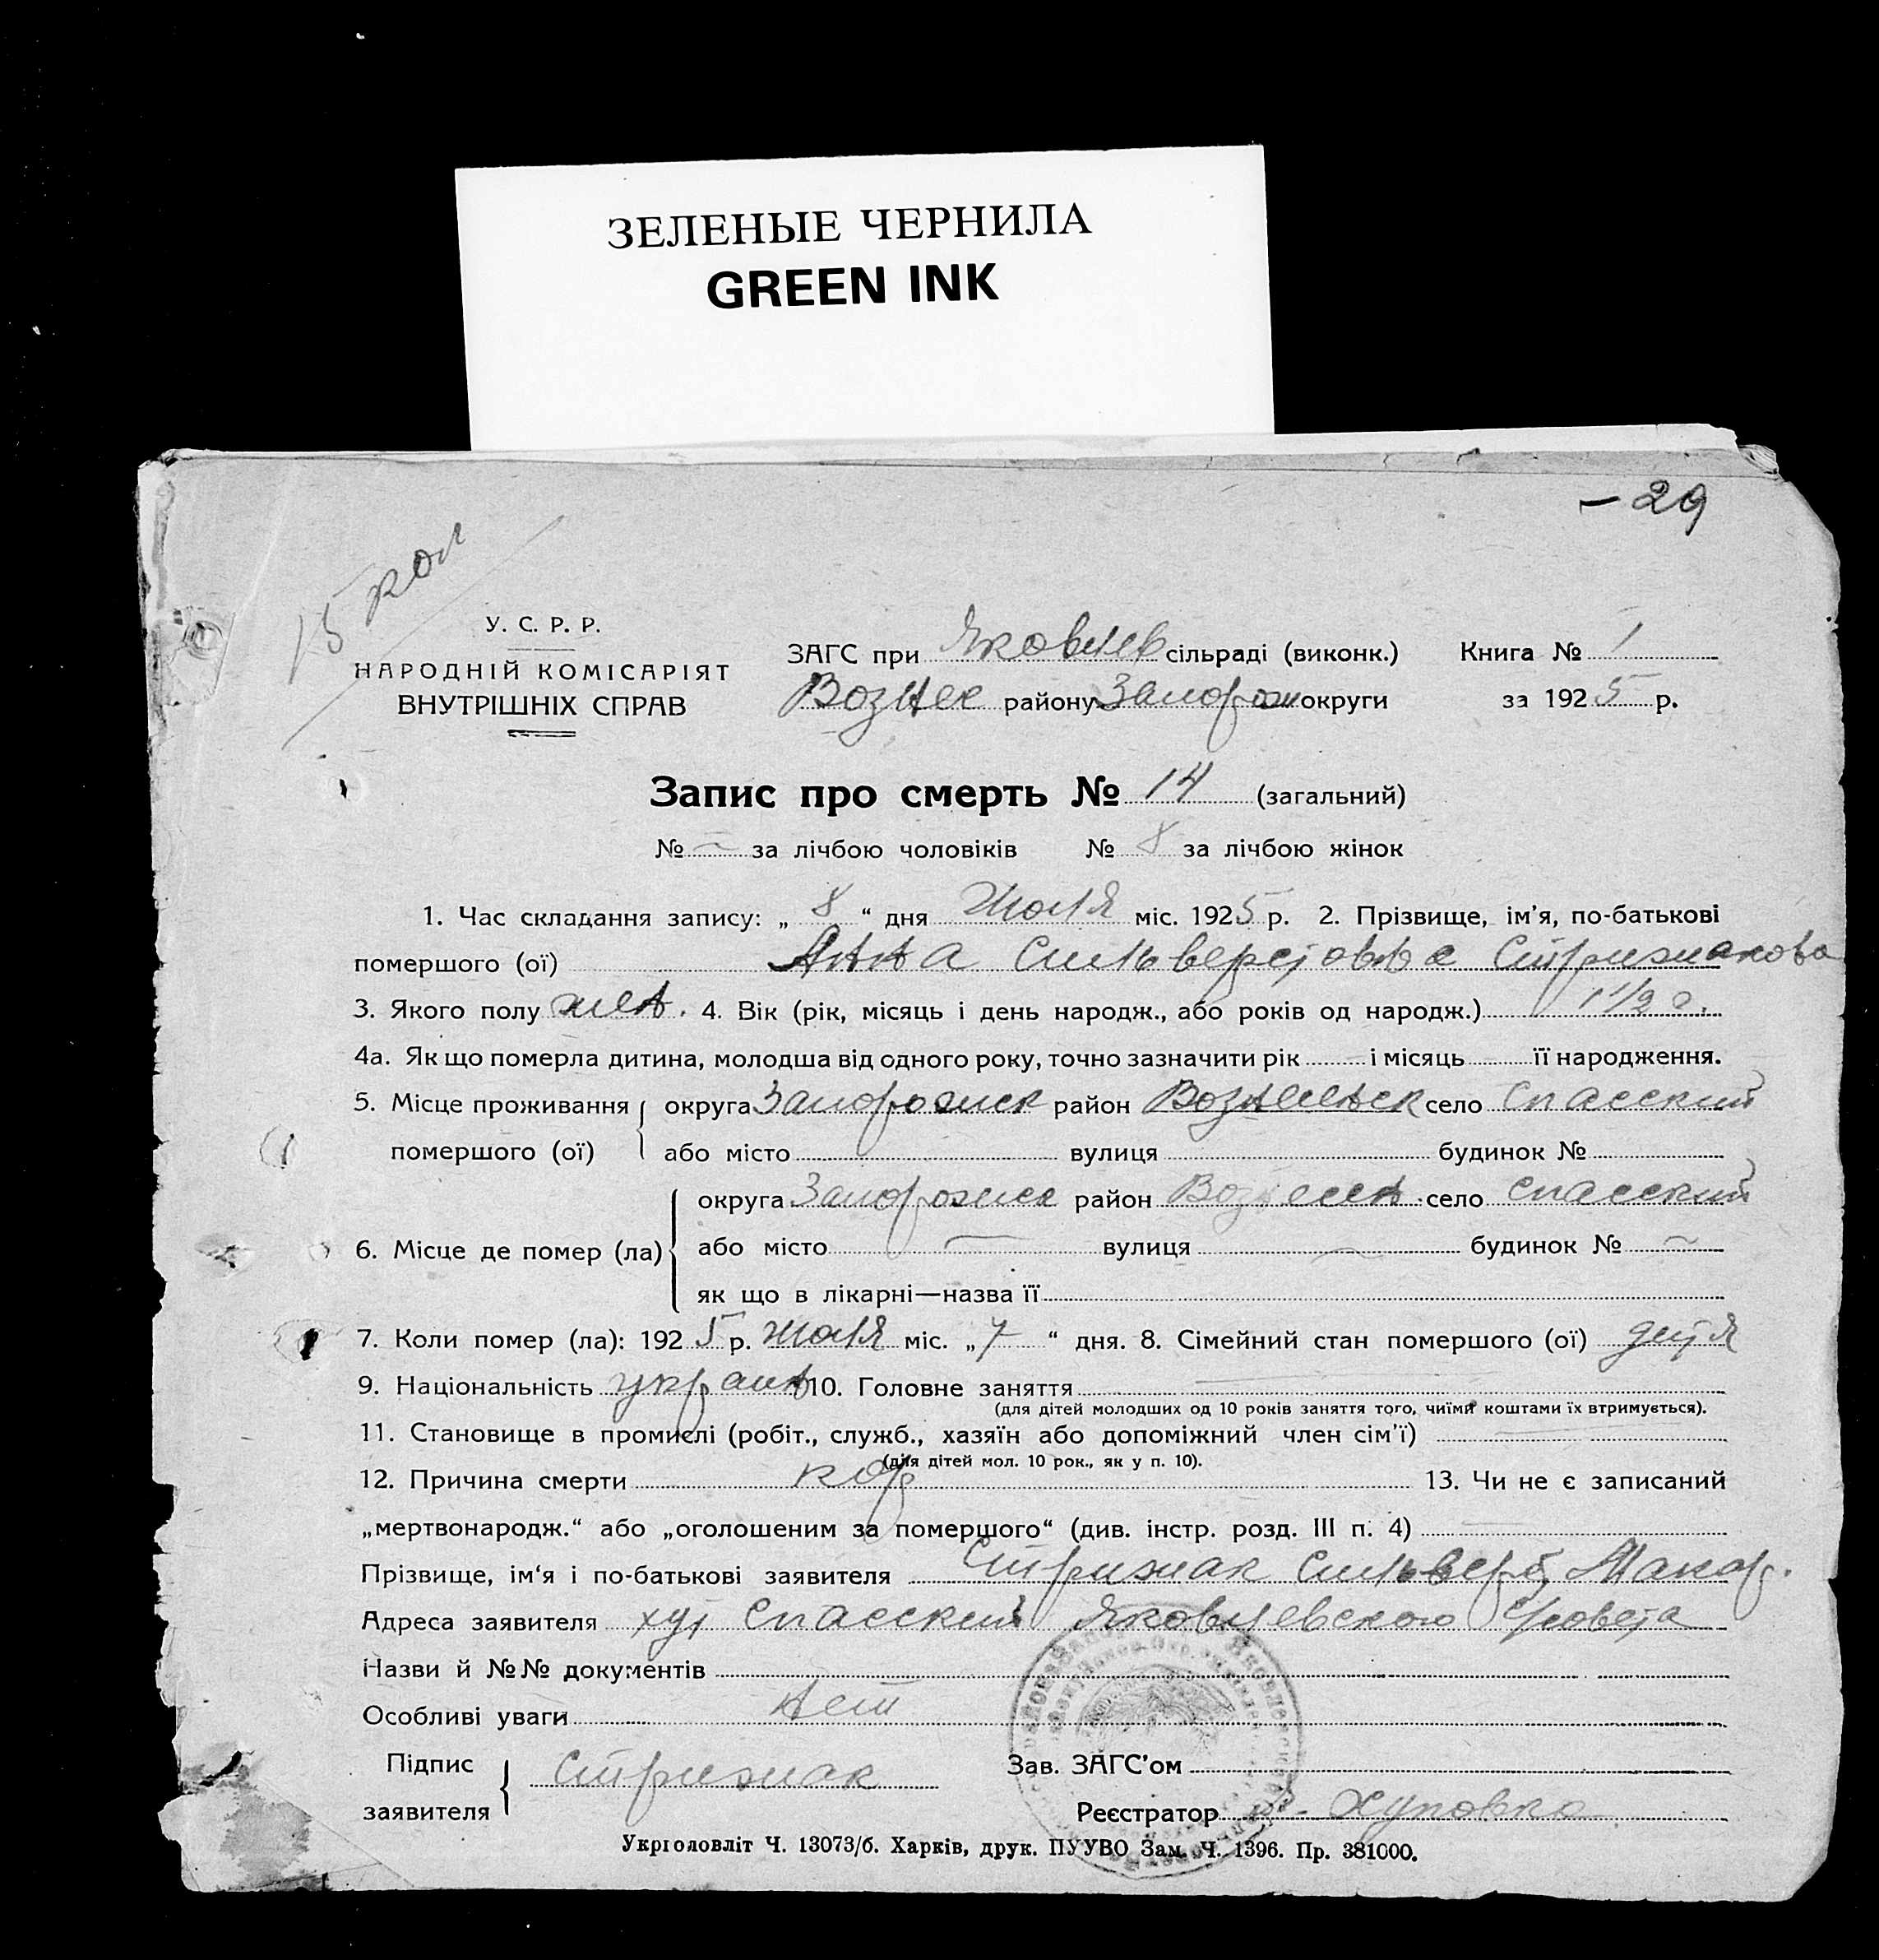 ЗЕЛЕНЫЕ ЧЕРНИЛА
GREEN INK
– 29
15 коп
У. С. Р. Р.
НАРОДНІЙ КОМІСАРІЯТ
ВНУТРІШНІХ СПРАВ
ЗАГС при Яковлев сільраді (виконк.) Книга № 1
Вознес району Запорож округи за 1925 р.
Запис про смерть № 14 (загальний)
№ — за лічбою чоловіків № 8 за лічбою жінок
1. Час складання запису: „ 8 “ дня Июля міс. 1925 р. 2. Прізвище, ім'я, по-батькові
помершого (ої) Анна Сильверстовна Стрижакова
3. Якого полу жен. 4. Вік (рік, місяць і день народж., або років од народж.) 1 1/2 г.
4а. Як що померла дитина, молодша від одного року, точно зазначити рік і місяць її народження.
5. Місце проживання округа Запорожск район Вознесенск село Спасский
помершого (ої) або місто вулиця будинок №
округа Запорожск район Вознесен. село Спасский
6. Місце де помер (ла) або місто — вулиця — будинок № —
як що в лікарні—назва її
7. Коли помер (ла): 1925 р. Июля міс. „7“ дня. 8. Сімейний стан помершого (ої) дитя
9. Національність украин 10. Головне заняття —
(для дітей молодших од 10 років заняття того, чиїми коштами їх втримується).
11. Становище в промислі (робіт., служб., хазяїн або допоміжний член сім'ї) —
(для дітей мол. 10 рок., як у п. 10).
12. Причина смерти кор 13. Чи не є записаний
„мертвонародж.“ або „оголошеним за помершого“ (див. інстр. розд. III п. 4) —
Прізвище, ім'я і по-батькові заявителя Стрижак Сильверст Макар.
Адреса заявителя хут Спасский Яковлевского С/совета
Назви й №№ документів
Особливі уваги нет
Підпис Зав. ЗАГС'ом
заявителя Стрижак Реєстратор
Укрголовліт Ч. 13073/б. Харків, друк. ПУУВО Зам. Ч. 1396. Пр. 381000.